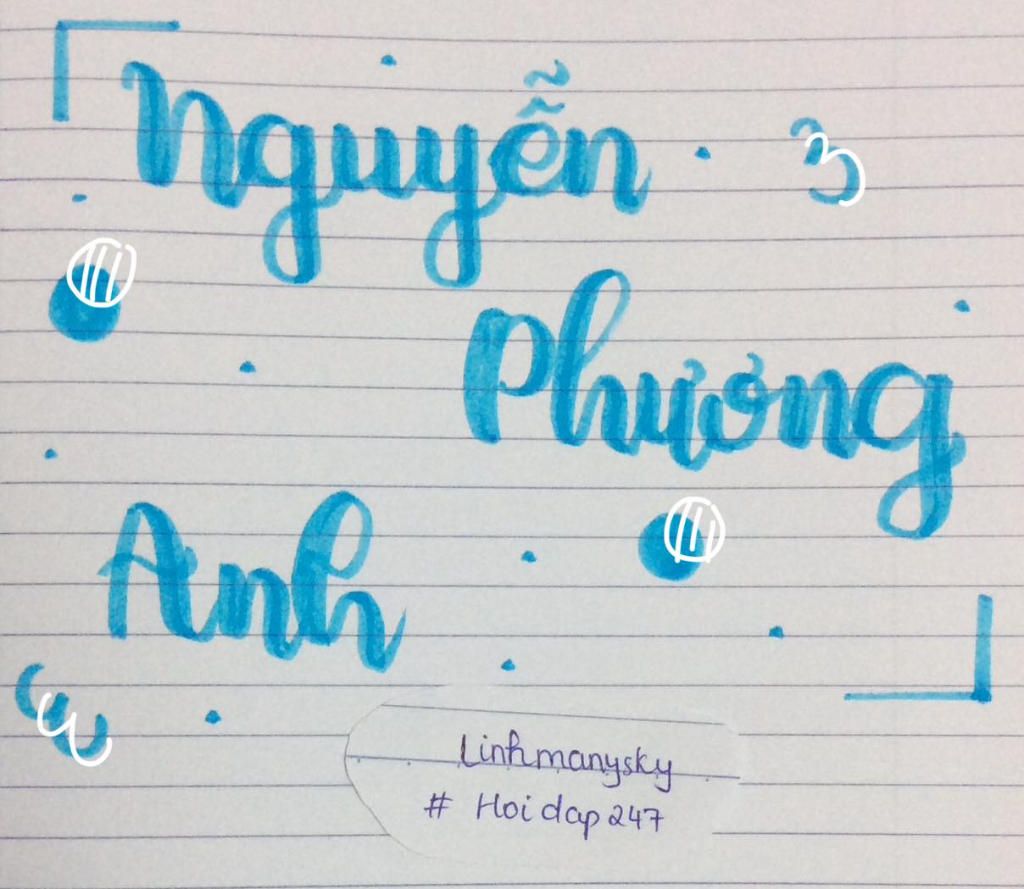 Nguyễn
Phương
Anh
Linhmanysky
# Hoidap247